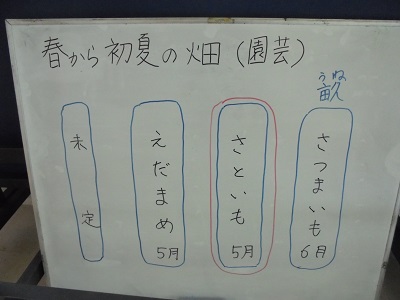 春から初夏の畑（園芸）
うね
畝
さつまいも 6月
さといも 5月
えだまめ 5月
未定